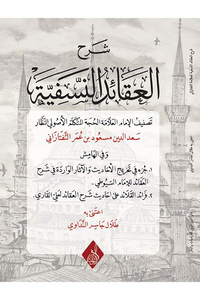 شرح
العقائد النسفية
تصنيف الإمام العلامة الحجة المتكلم الأصولي النظار
سعد الدين مسعود بن عمر التفتازاني
وفي الهامش
١. جزء في تخريج الأحاديث والآثار الواردة في شرح
العقائد للإمام السيوطي.
٢. فرائد القلائد على أحاديث شرح العقائد لعلي القاري.
اعتنى به
طلال جاسر النداوي